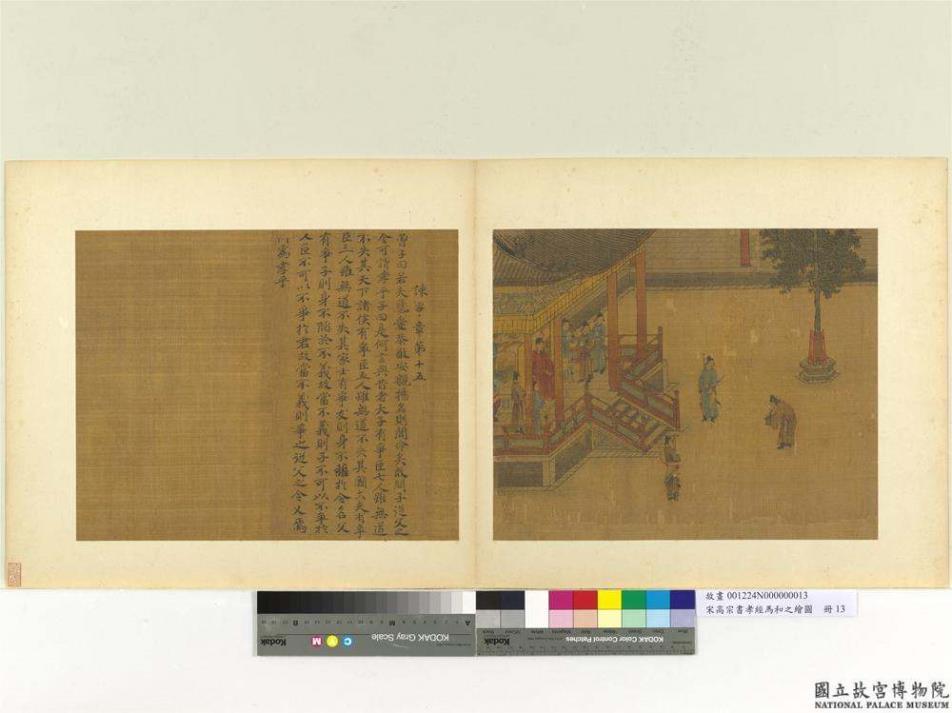 諫諍章第十五
曾子曰若夫慈愛恭敬安親揚名則聞命矣敢問子從父之
令可謂孝乎子曰是何言與昔者天子有爭臣七人雖無道
不失其天下諸侯有爭臣五人雖無道不失其國大夫有爭
臣三人雖無道不失其家士有爭友則身不離於令名父
有爭子則身不陷於不義故當不義則子不可以不爭於
父臣不可以不爭於君故當不義則爭之從父之令又焉
以為孝乎
故畫 001224N000000013
宋高宗書孝經馬和之繪圖 冊 13
KODAK Gray Scale
Kodak
C Y M
KODAK Color Control Patches
Kodak
國立故宮博物院
NATIONAL PALACE MUSEUM